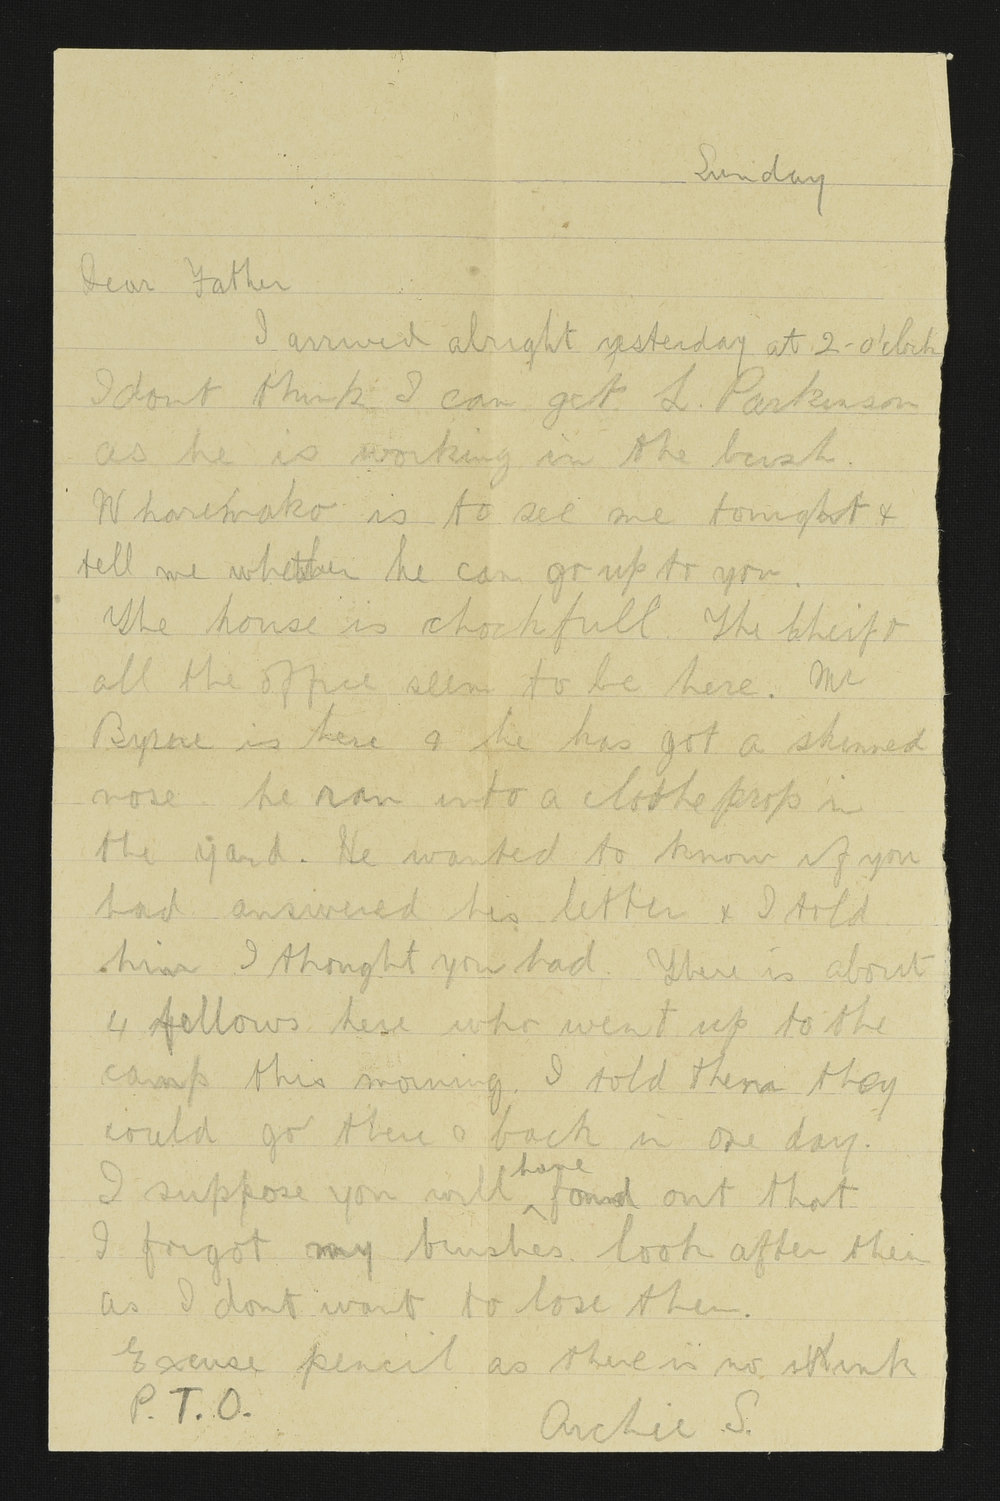 Sunday
Dear Father
I arrived alright yesterday at 2-o'clock
I dont think I can get L. Parkinson
as he is working in the bush.
Wharemako is to see me tonight &
tell me whether he can go up to you.
The house is chockfull. The
all the office seem to be here. Mr
Byrne is here & he has got a skinned
nose. he ran into a clotheprop in
the yard. He wanted to know if you
had answered his letter & I told
him I thought you had. There is about
4 fellows here who went up to the
camp this morning. I told them they
could go there & back in one day.
I suppose you will have found out that
I forgot my brushes. look after them
as I dont want to lose them.
Excuse pencil as there is no ink
P.T.O.
Archie S.